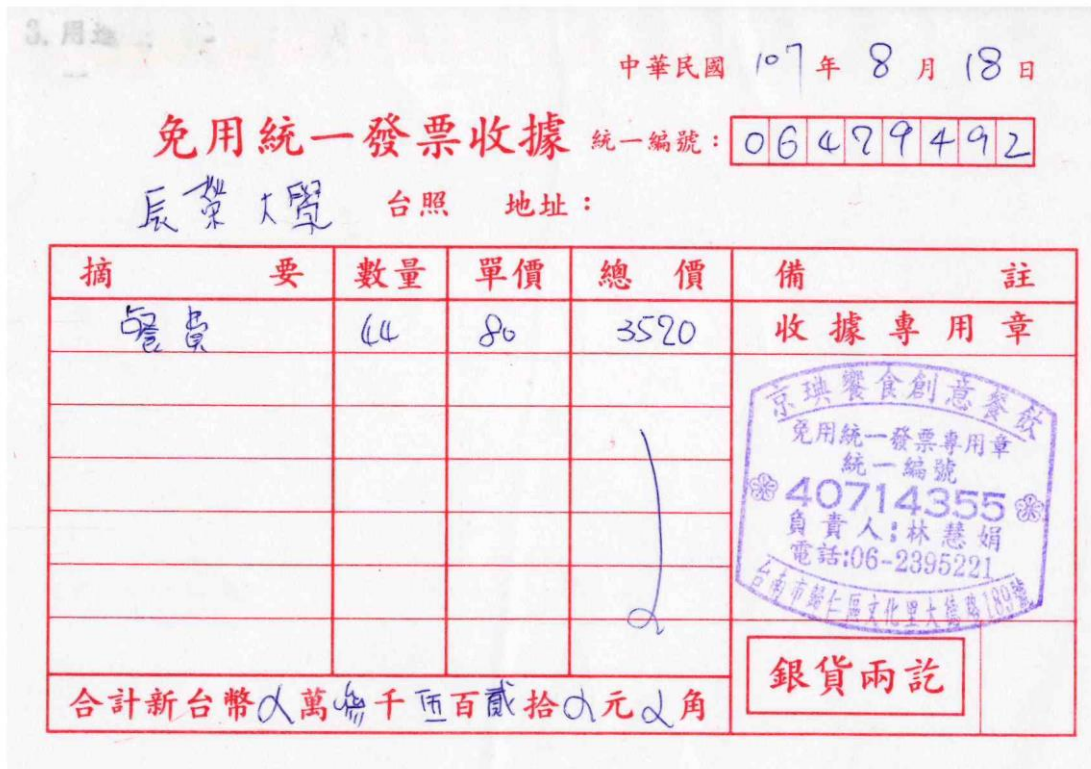 中華民國 107 年 8 月 18 日
免用統一發票收據 統一編號: 06479492
長榮大學 台照 地址:
摘要 數量 單價 總價 備註
餐費 44 80 3520 收據專用章
京琠饗食創意餐飲
免用統一發票專用章
統一編號
40714355
負責人:林慧娟
電話:06-2395221
台南市歸仁區文化里大德路189號
銀貨兩訖
合計新台幣 萬參千伍百貳拾 元 角